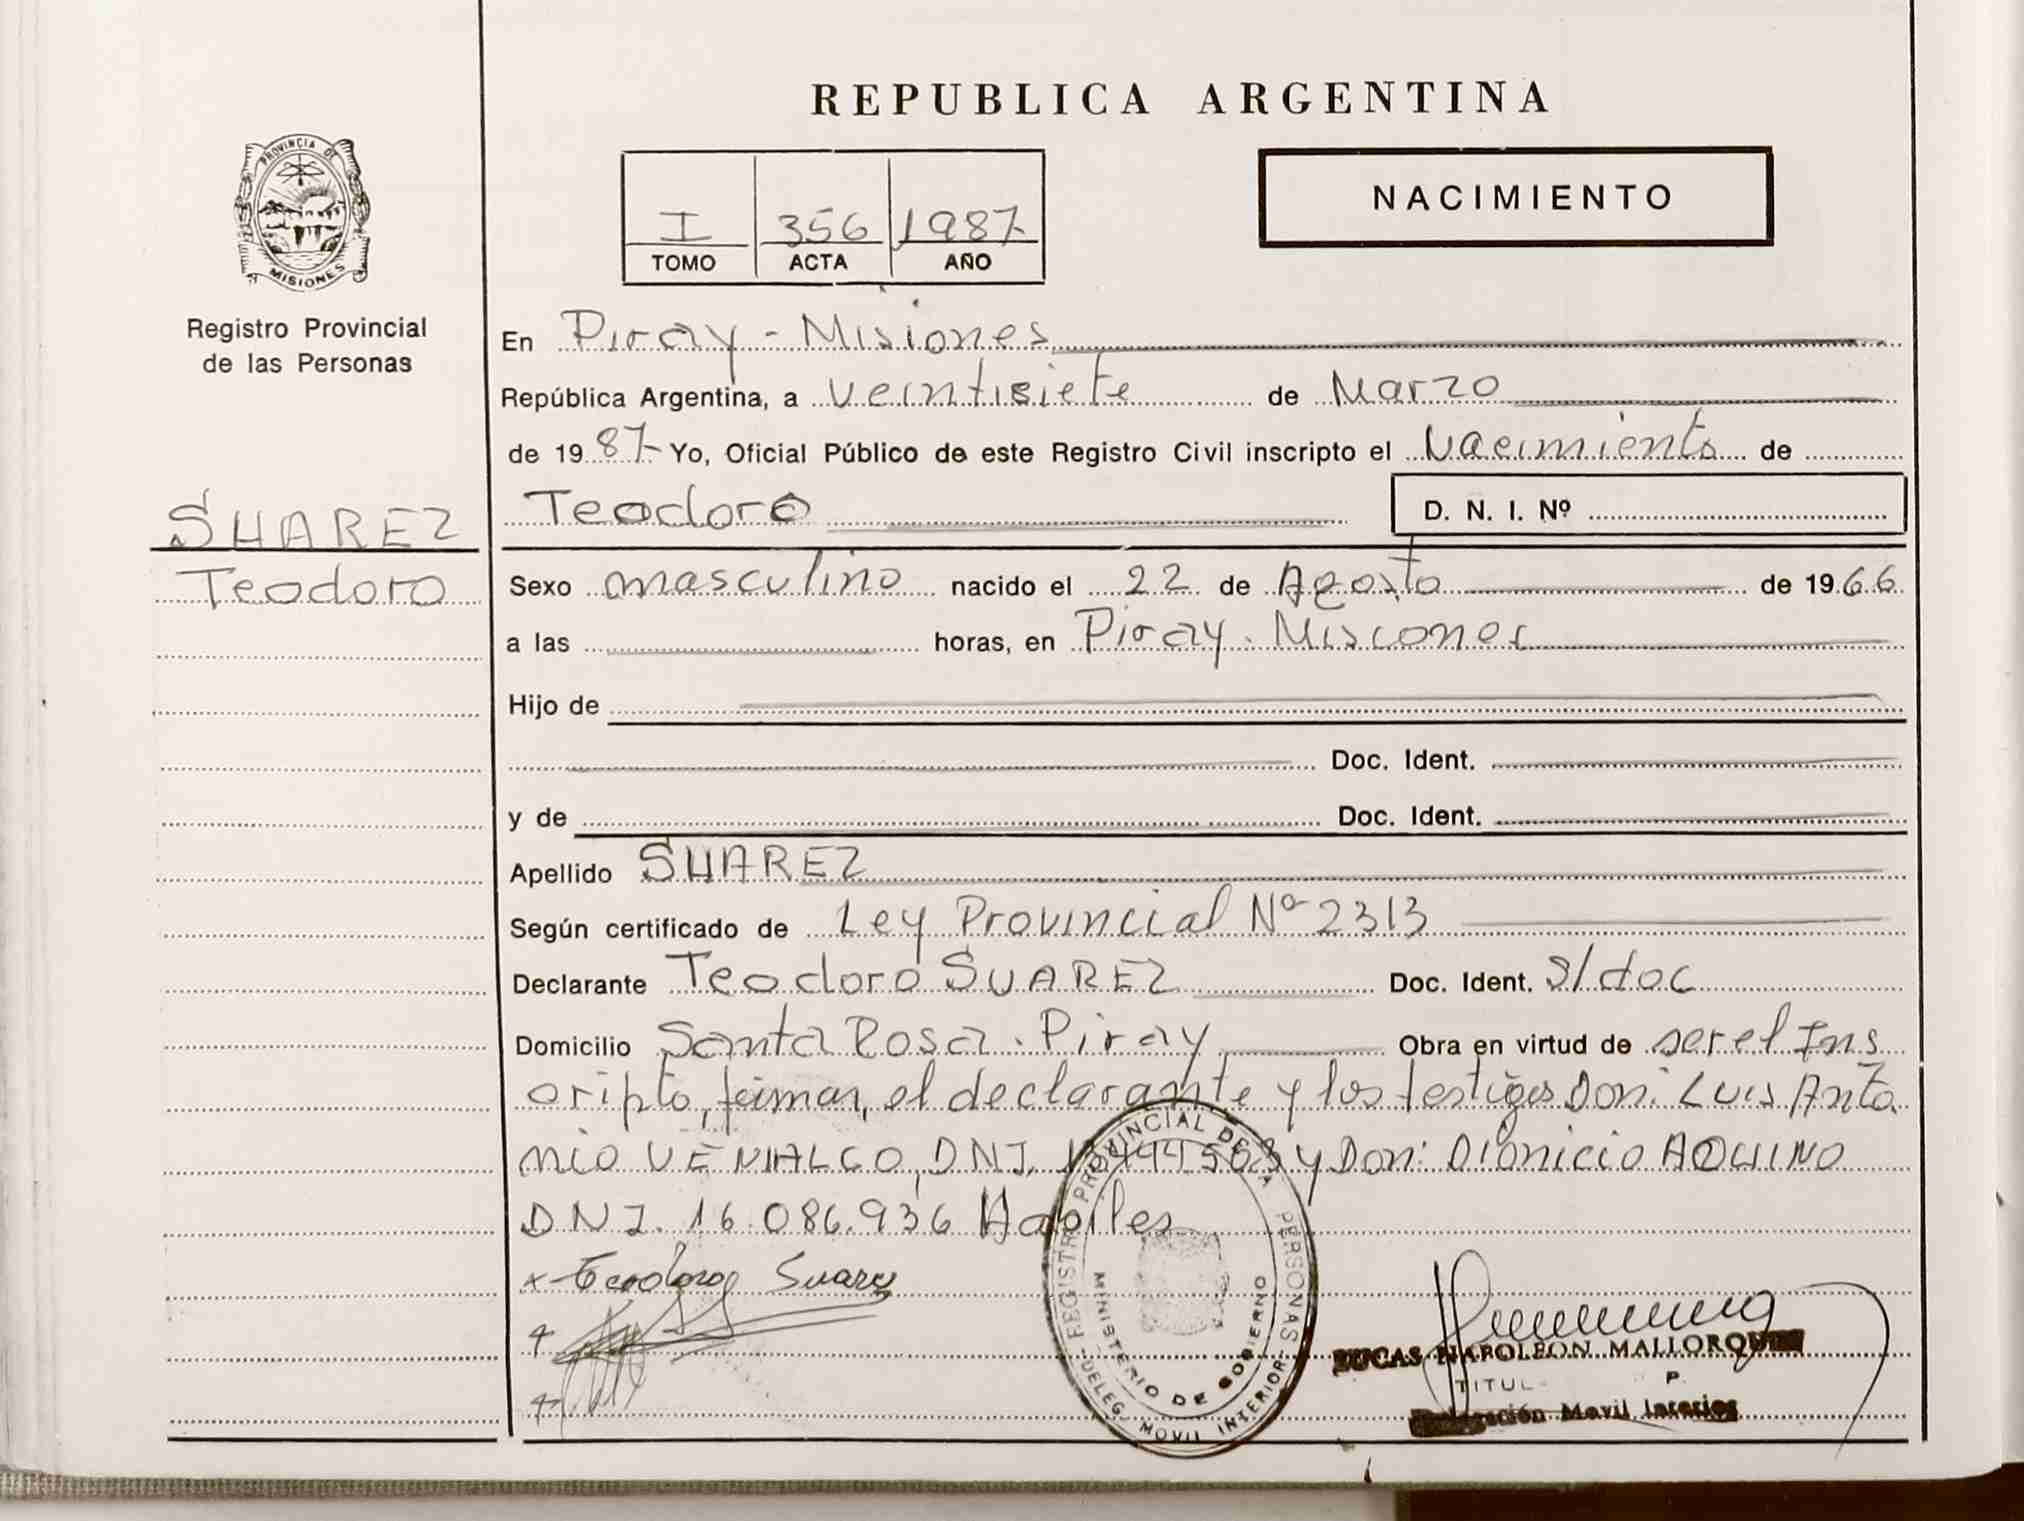 REPUBLICA ARGENTINA
PROVINCIA DE
MISIONES
Registro Provincial
de las Personas
I 356 1987
TOMO ACTA AÑO
NACIMIENTO
En Piray - Misiones
República Argentina, a veintisiete de Marzo
de 1987 Yo, Oficial Público de este Registro Civil inscripto el Nacimiento de
Teodoro D. N. I. Nº
SUAREZ
Teodoro
Sexo masculino nacido el 22 de Agosto de 1966
a las horas, en Piray - Misiones
Hijo de
Doc. Ident.
y de Doc. Ident.
Apellido SUAREZ
Según certificado de Ley Provincial Nº 2313
Declarante Teodoro SUAREZ Doc. Ident. S/doc
Domicilio Santa Rosa - Piray Obra en virtud de ser el Ins
cripto, firman, el declarante y los testigos Don: Luis Anto
nio VENIALGO, DNI. y Don: Dionicio AQUINO
DNI. 16.086.936 Habiles
x Teodoro Suarez
REGISTRO PROVINCIAL DE LA PERSONAS
MINISTERIO DE GOBIERNO
DELEG. MOVIL INTERIOR
LUCAS NAPOLEON MALLORQUIN
TITUL P.
Delegación Movil Interior